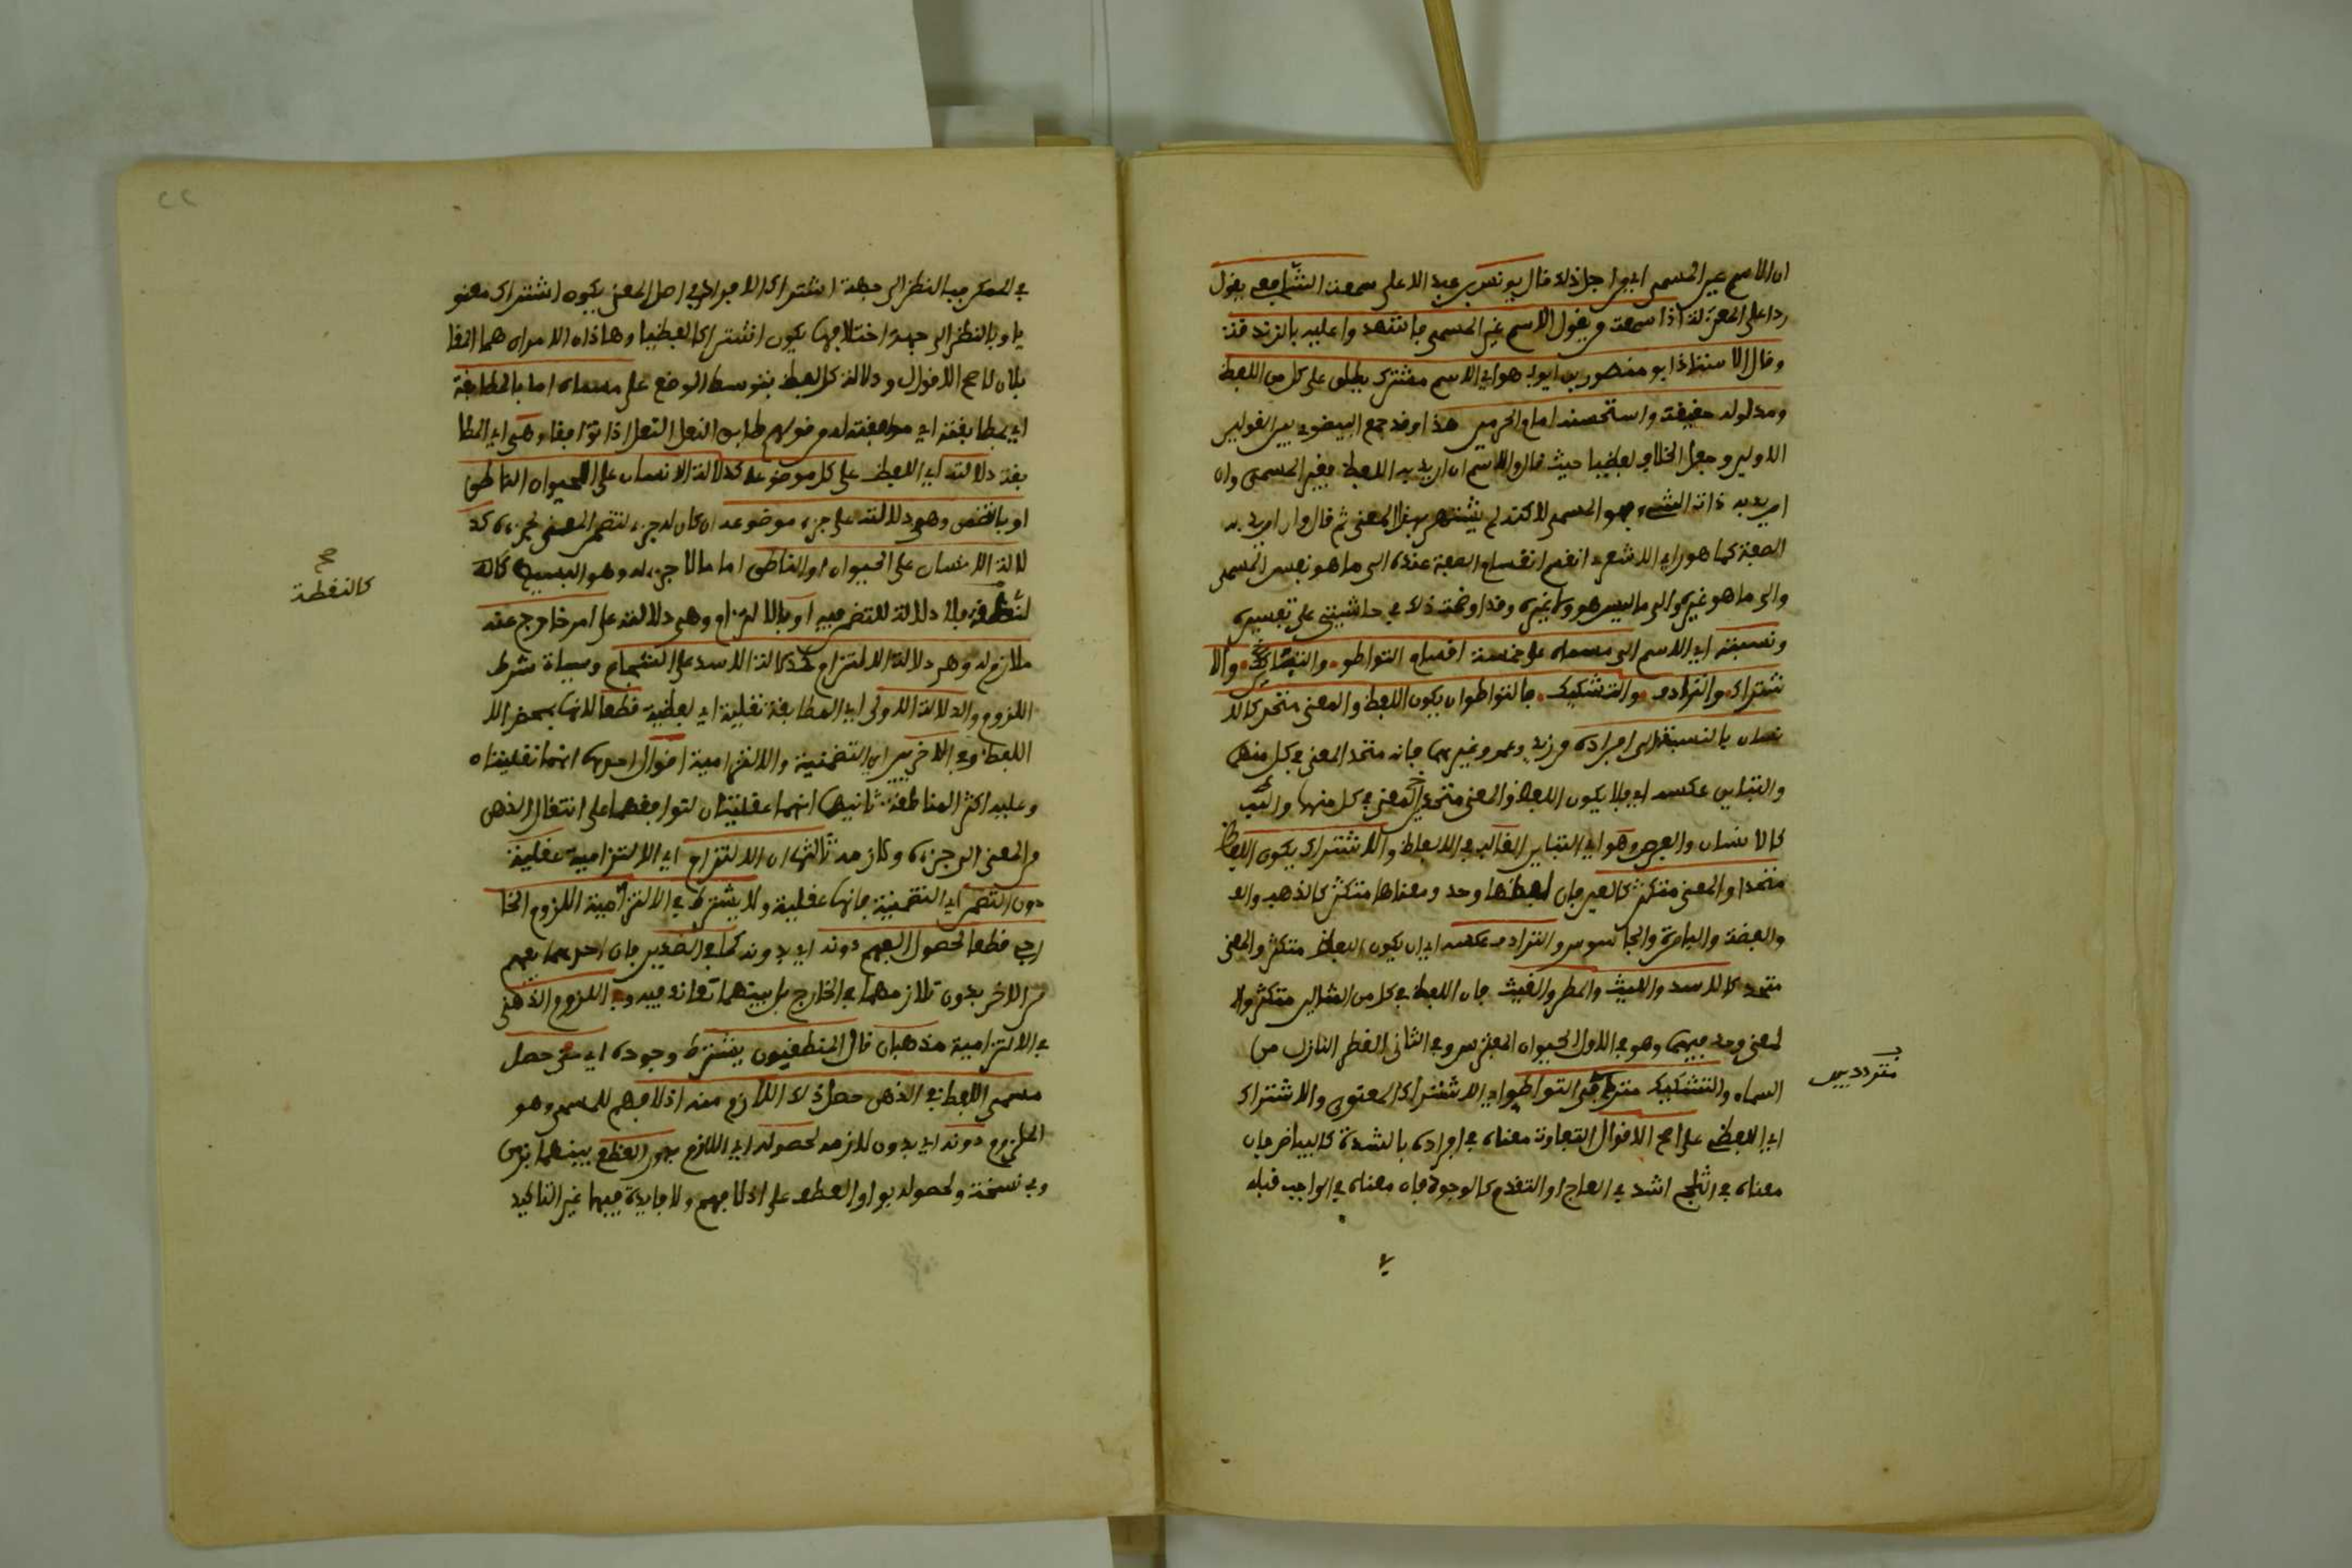 ان الاسم عين المسمى اي من اجل ذلك قال يونس بن عبد الاعلى سمعت الشافعي يقول
ردا على المعتزلة اذا سمعته يقول الاسم غير المسمى فاشهد وا عليه بالزندقة
وقال الاستاذ ابو منصور بن ايوب هو اي الاسم مشترك يطلق على كل من اللفظ
ومدلوله حقيقة واستحسنه امام الحرمين هذا وقد جمع البيضوي بين القولين
الاولين وجعل الخلاف لفظيا حيث قال والاسم ان اريد به اللفظ فغير المسمى وان
اريد به ذات الشيء فهو المسمى لاكنه لم يشتهر بهذا المعنى ثم قال وان اريد به
الصفة كما هو راي الاشعري انقسم انقسام الصفة عنده الى ما هو نفس المسمى
والى ما هو غيره والى ما ليس هو ولا غيره وقد اوضحت ذلك في حاشيتي على تفسيره
ونسبته اي الاسم الى مسماه على خمسة اقسام التواطو والتباين والا
شتراك والترادف والتشكيك فالتواطو ان يكون اللفظ والمعنى متحد كالا
نسان بالنسبة الى افراده من زيد وعمرو وغيرهما فانه متحد المعنى في كل منهما
والتباين عكسه اي فلا يكون اللفظ والمعنى متحد المعنى في كل منها
كالانسان والفرس وهو اي التباين الغالب في الالفاظ والاشتراك يكون اللفظ
متحدا والمعنى متكثر كالعين فان لفظها وحد ومعناها متكثر كالذهب والع
والفضة والباصرة والجاسوس والترادف عكسه اي ان يكون اللفظ متكثر والمعنى
متحد كالاسد والليث والمطر والغيث فان اللفظ في كل من المثالين متكثر وال
لمعنى وحد فيهما وهو في الاول الحيوان المفترس وفي الثاني القطر النازل من
السماء والتشكيك التواطو اي الاشتراك المعنوي والاشتراك
متردد بين
اي اللفظي على اصح الاقوال لتفاوت معناه في افراده بالشدة كالبياض فان
معناه في الثلج اشد في العاج او التقدم كالوجود فان معناه في الواجب قبله
٢٢
في الممكن فبالنظر الى جهة اشتراك الافراد في اصل المعنى يكون اشتراك معنو
يا وبالنظر الى جهة اختلافها يكون اشتراكا لفظيا وهاذان الامران هما القا
بلان لاصح الاقوال ودلالة كل لفظ بتوسط الوضع على مسماه اما بالمطابقة
اي بمطابقة اي موافقته له من قولهم طابق النعل النعل اذا توافقا وهي اي المطا
بقة دلالته اي اللفظ على كل موضوعه كدلالة الانسان على الحيوان الناطق
او بالتضمن وهي دلالته على جزء موضوعه ان كان له جزء لتضمن المعنى لجزءه كد
لالة الانسان على الحيوان او الناطق اما ما لا جزء له وهو البسيط كاله
كالنقطة
صح
لنقطة فلا دلالة للتضمن فيه او بالالتزام وهي دلالته على امر خارج عنه
ملازم له وهي دلالة الالتزام كدلالة الاسد على الشجاع وسياة شرط
اللزوم والدلالة الاولى اي المطابقة نقلية اي لفظية قطعا لانها بمحض الل
اللفظ وفي الاخريين اي التضمنية والالتزامية اقوال احدها انهما نقليتان
وعليه اكثر المناطقة ثانيها انهما عقليتان لتوافقهما على انتقال الذهن
من المعنى الى جزءه ولازمه ثالثها ان الالتزام اي الالتزامية عقلية
دون التضمن اي التضمنية فانها عقلية ولا يشترط في الالتزامية اللزوم الخا
رجي قطعا لحصول الفهم دونه اي بدونه كما في الضدين فان احدهما يفهم
من الاخر بدون تلازمهما في الخارج بل بينهما تعاند فيه وفي اللزوم الذهني
في الالتزامية مذهبان قال المنطقيون يشترط وجوده اي متى حصل
مسمى اللفظ في الذهن حصل ذلك اللازم منه اذ لا فهم للمسمى وهو
الملزوم دونه اي بدون لازمه لحصوله اي اللازم بدون القطع بينهما بزمن
وفي نسخة ولحصوله بواو العطف على اذ لا فهم ولا فايدة فيها غير التاكيد